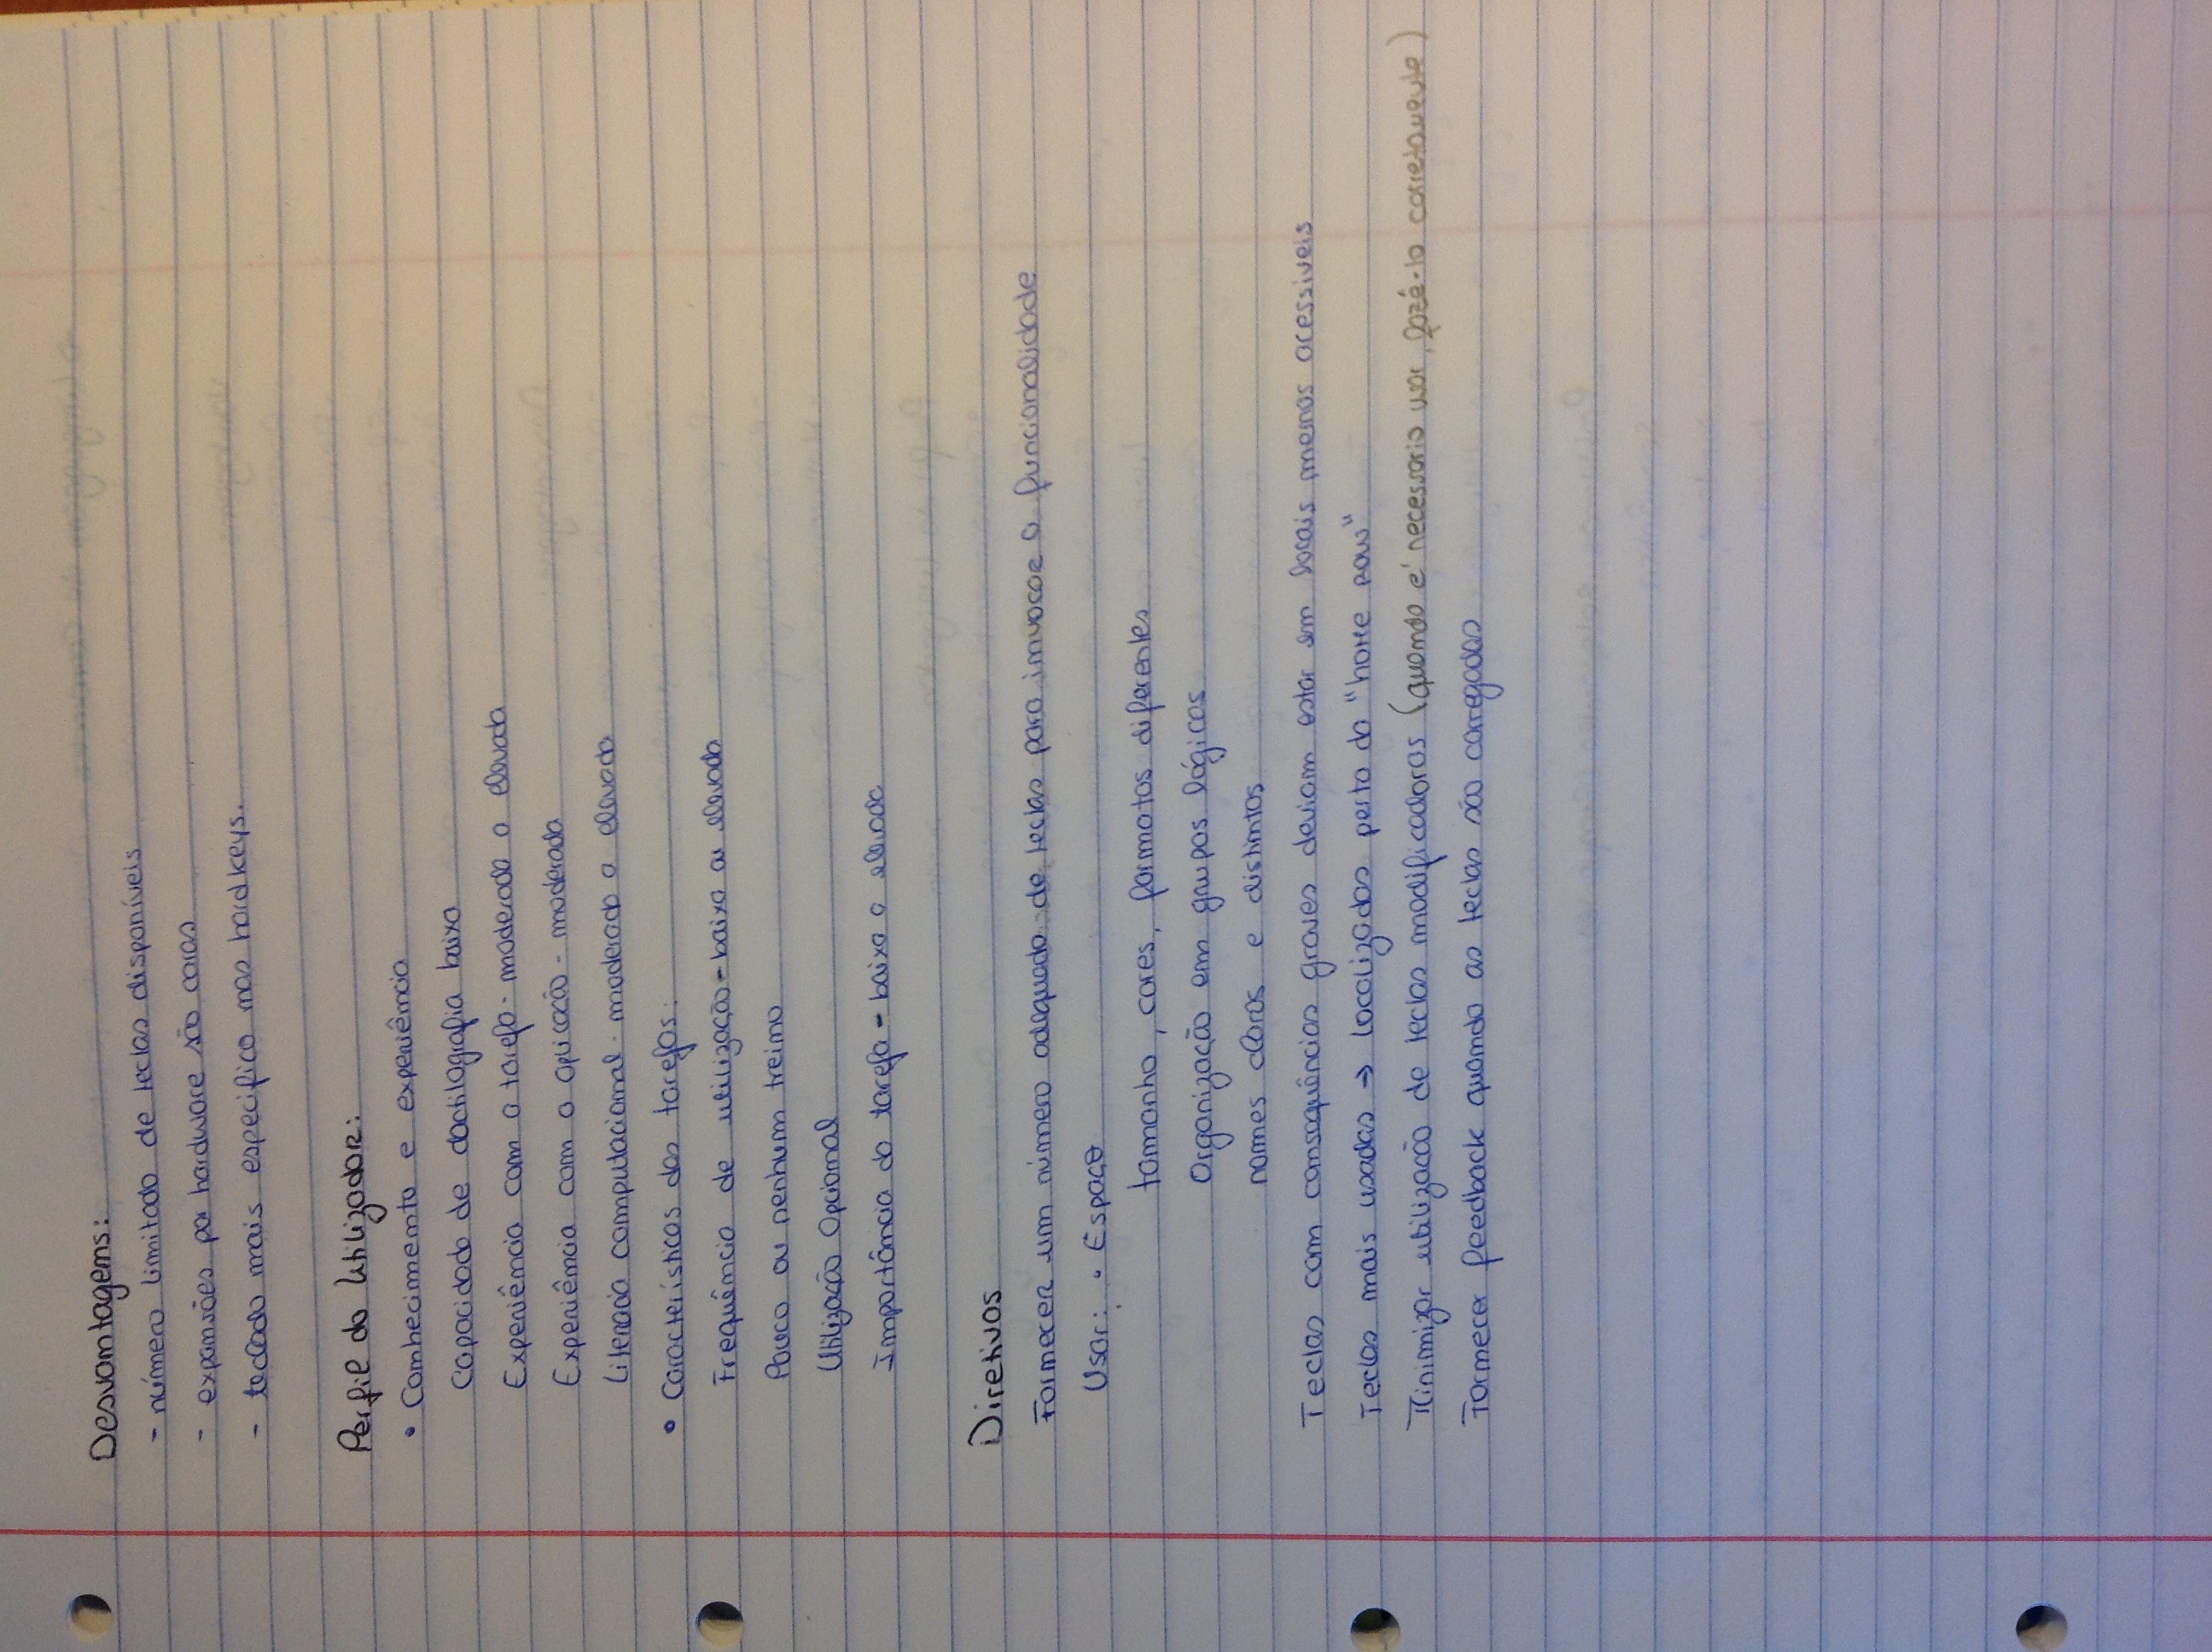 Desvantagens:
- número limitado de teclas disponíveis
- expansões por hardware são caras
- teclado mais especifico nas hard keys.
Perfil do Utilizador:
• Conhecimento e experiência
Capacidade de dactilografia baixa
Experiência com a tarefa - moderada a elevada
Experiência com a aplicação - moderada
Literacia computacional - moderada a elevada
• Características das tarefas:
Frequência de utilização - baixa ou elevada
Pouco ou nenhum treino
Utilização Opcional
Importância da tarefa - baixa a elevada
Diretivas
Fornecer um número adequado de teclas para invocar a funcionalidade
Usar: • Espaço
tamanho, cores, formatos diferentes
Organização em grupos lógicos
nomes claros e distintos
Teclas com consequências graves deviam estar em locais menos acessiveis
Teclas mais usadas → localizadas perto da "home row"
Minimizar utilização de teclas modificadoras (quando é necessario usar, fazê-lo corretamente)
Fornecer feedback quando as teclas são carregadas